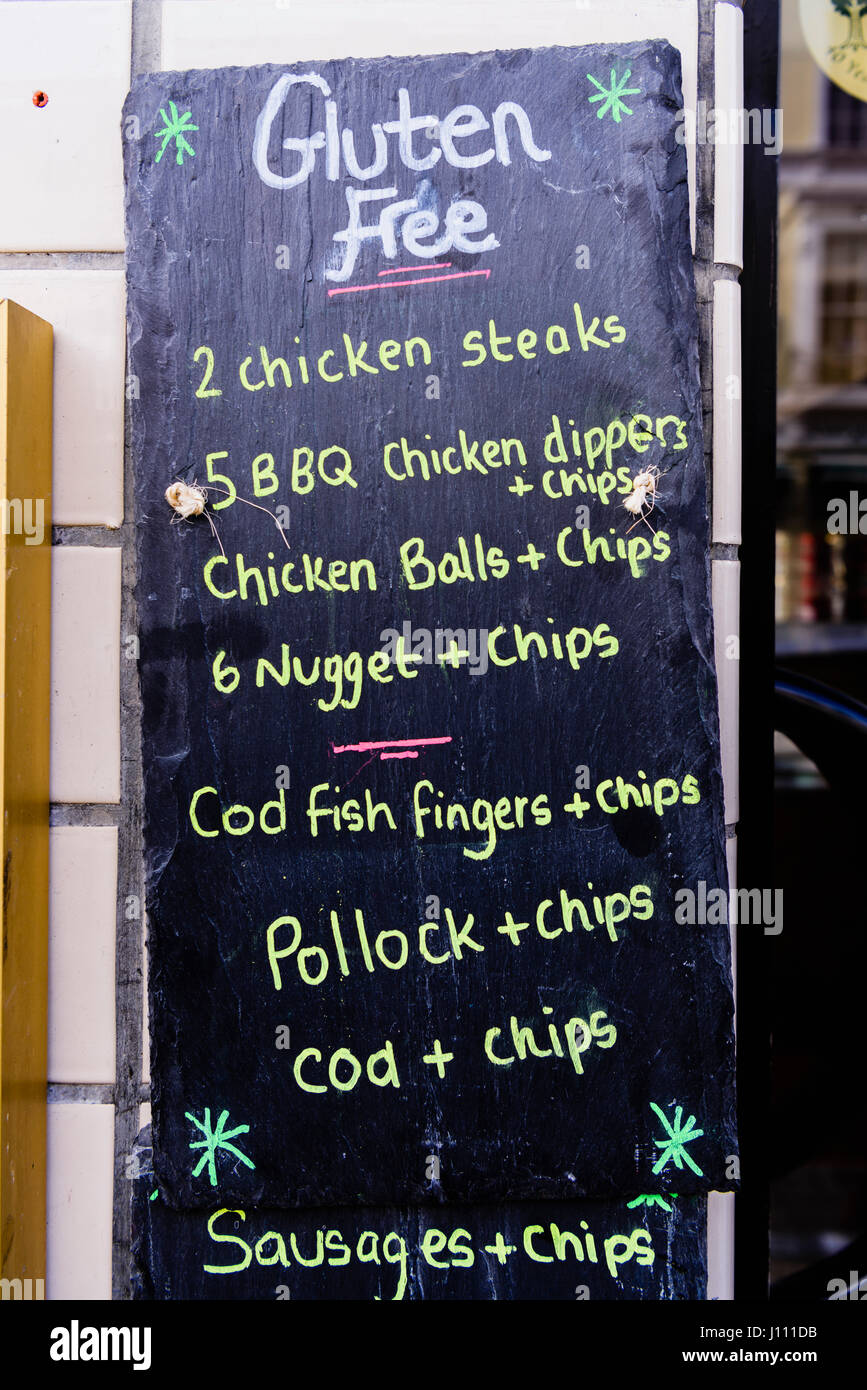 Gluten
Free
2 chicken steaks
5 BBQ Chicken dippers
+ chips
Chicken Balls + Chips
6 Nugget + Chips
Cod fish fingers + chips
Pollock + chips
cod + chips
Sausages + chips
alamy
Image ID: J111DB
www.alamy.com